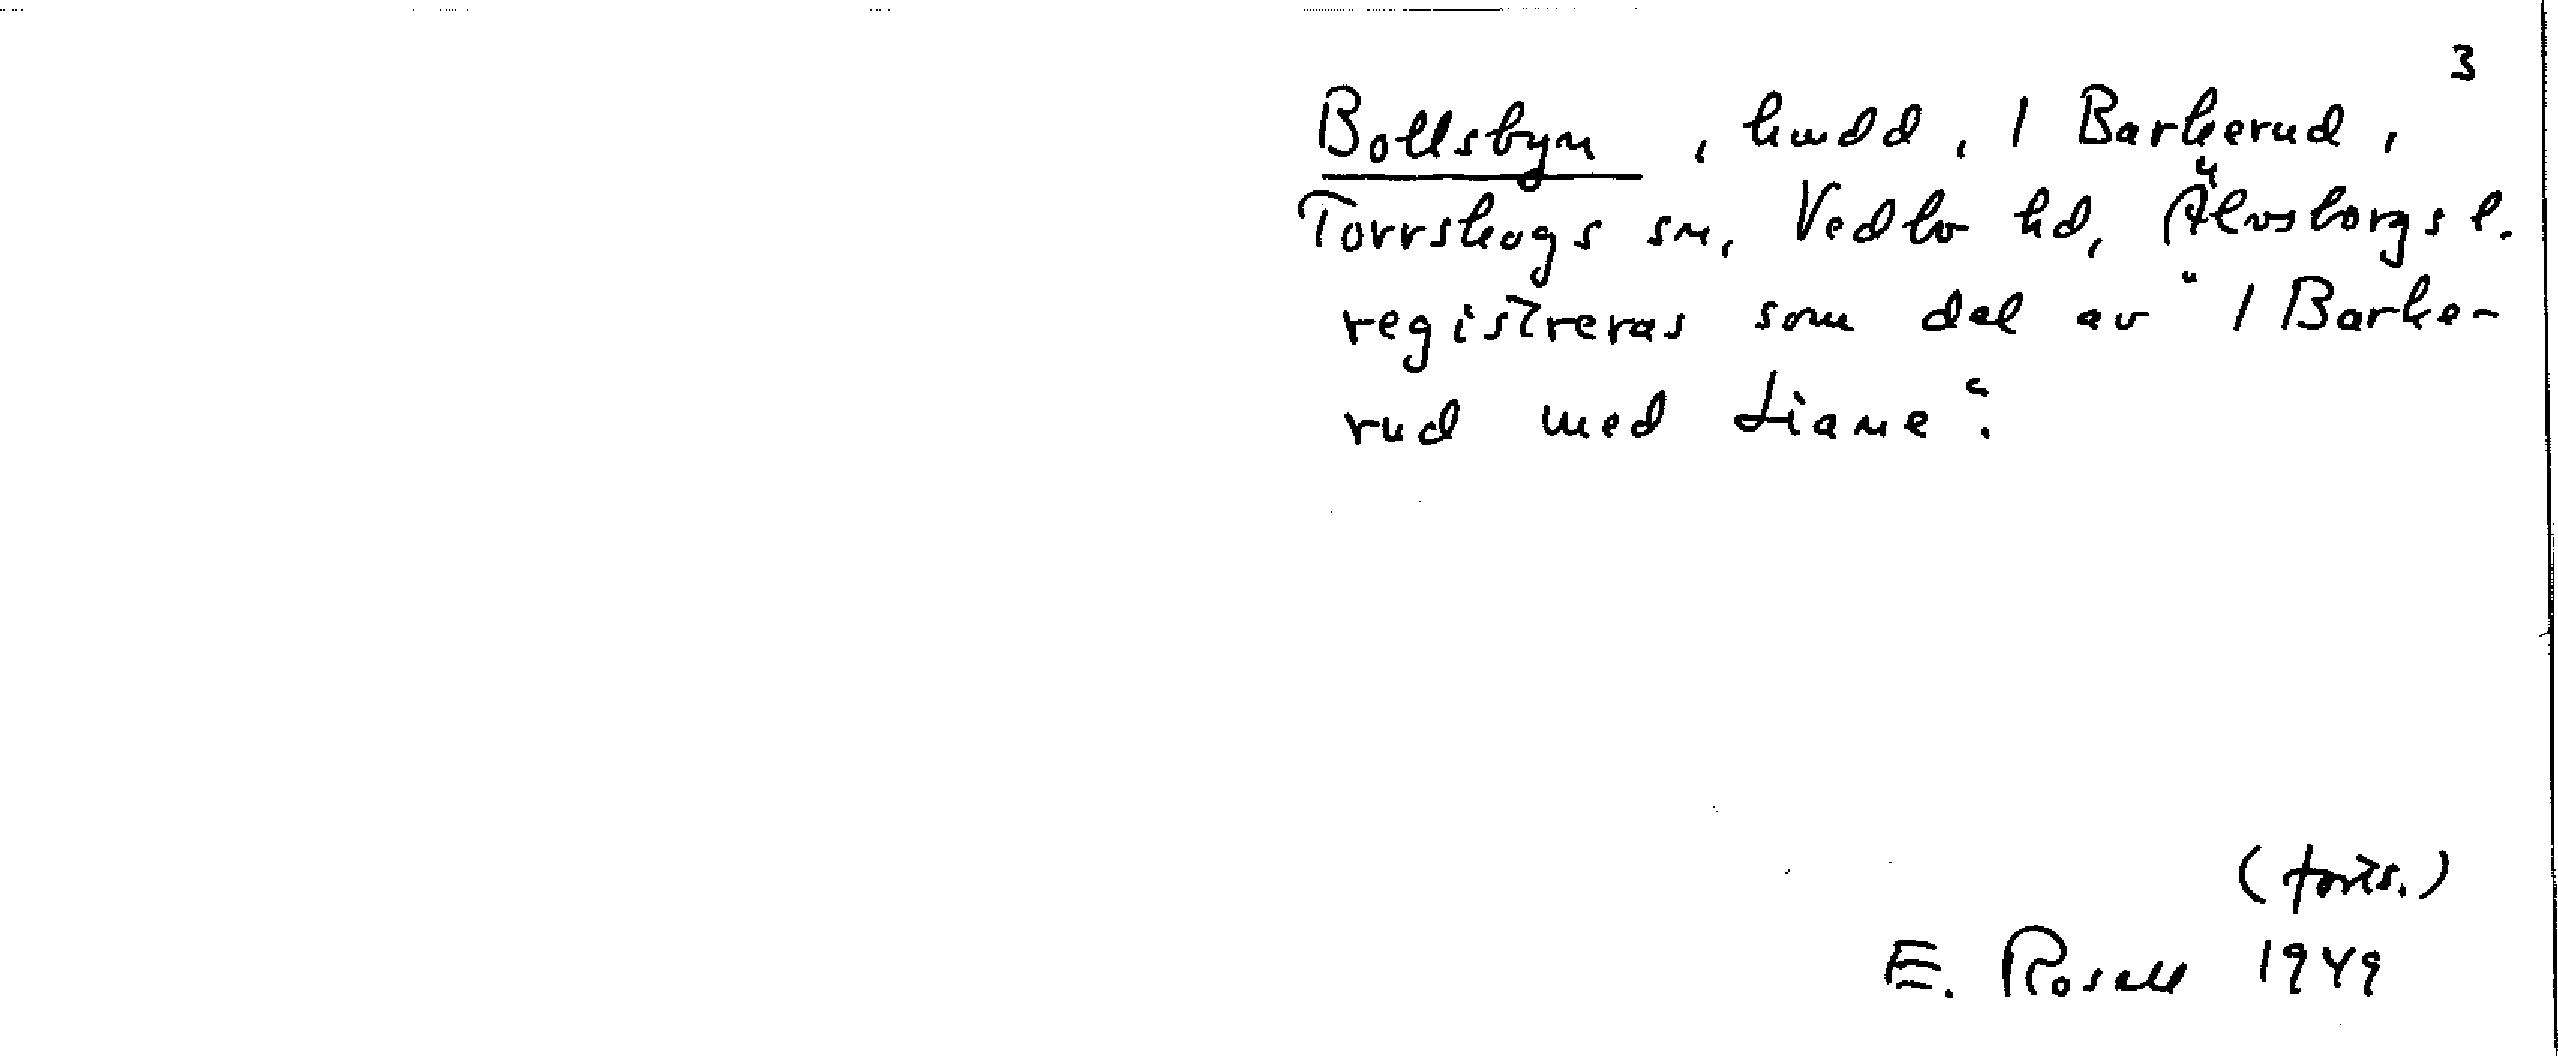 3
Bollsbyn, hmdd, 1 Barkerud,
Torrskogs sn, Vedbo hd, Älvsborgs l.
registreras som del av "1 Barke-
rud med Liane".
(forts.)
E. Rosell 1949